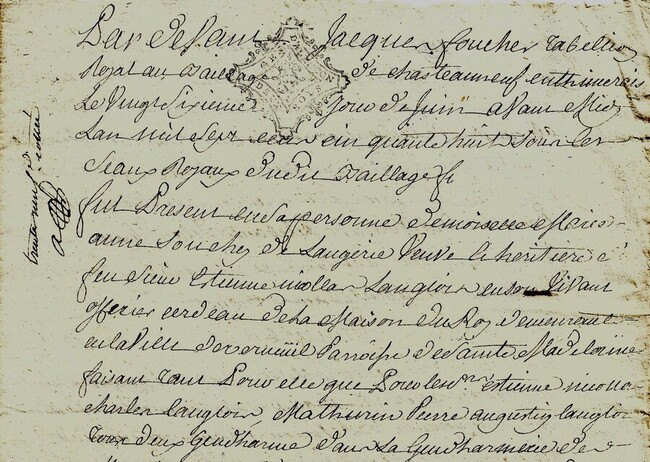 Par devant Jacques foucher tabellion
Royal au Baillage de chasteauneuf en thimerais
Le Vingt Sixieme Jour de Juin avant Midi
Lan mil Sept cent cinquante huit sous les
Seaux Royaux dudit Baillage
fut Present en Sa personne demoiselle Marie
anne Souchey de Laugerie Veuve & heritiere
feu Sieur Estienne nicollas Langlois en son Vivant
officier cerdeau de La Maison du Roy demeurante
en la Ville de verneüil Paroisse de Sainte Madelaine
faisant tant Pour elle que Pour les Srs Estienne nicolas
charles Langlois Mathurin Pierre augustin Langlois
tous deux Gendharme dans La Gendharmerie de